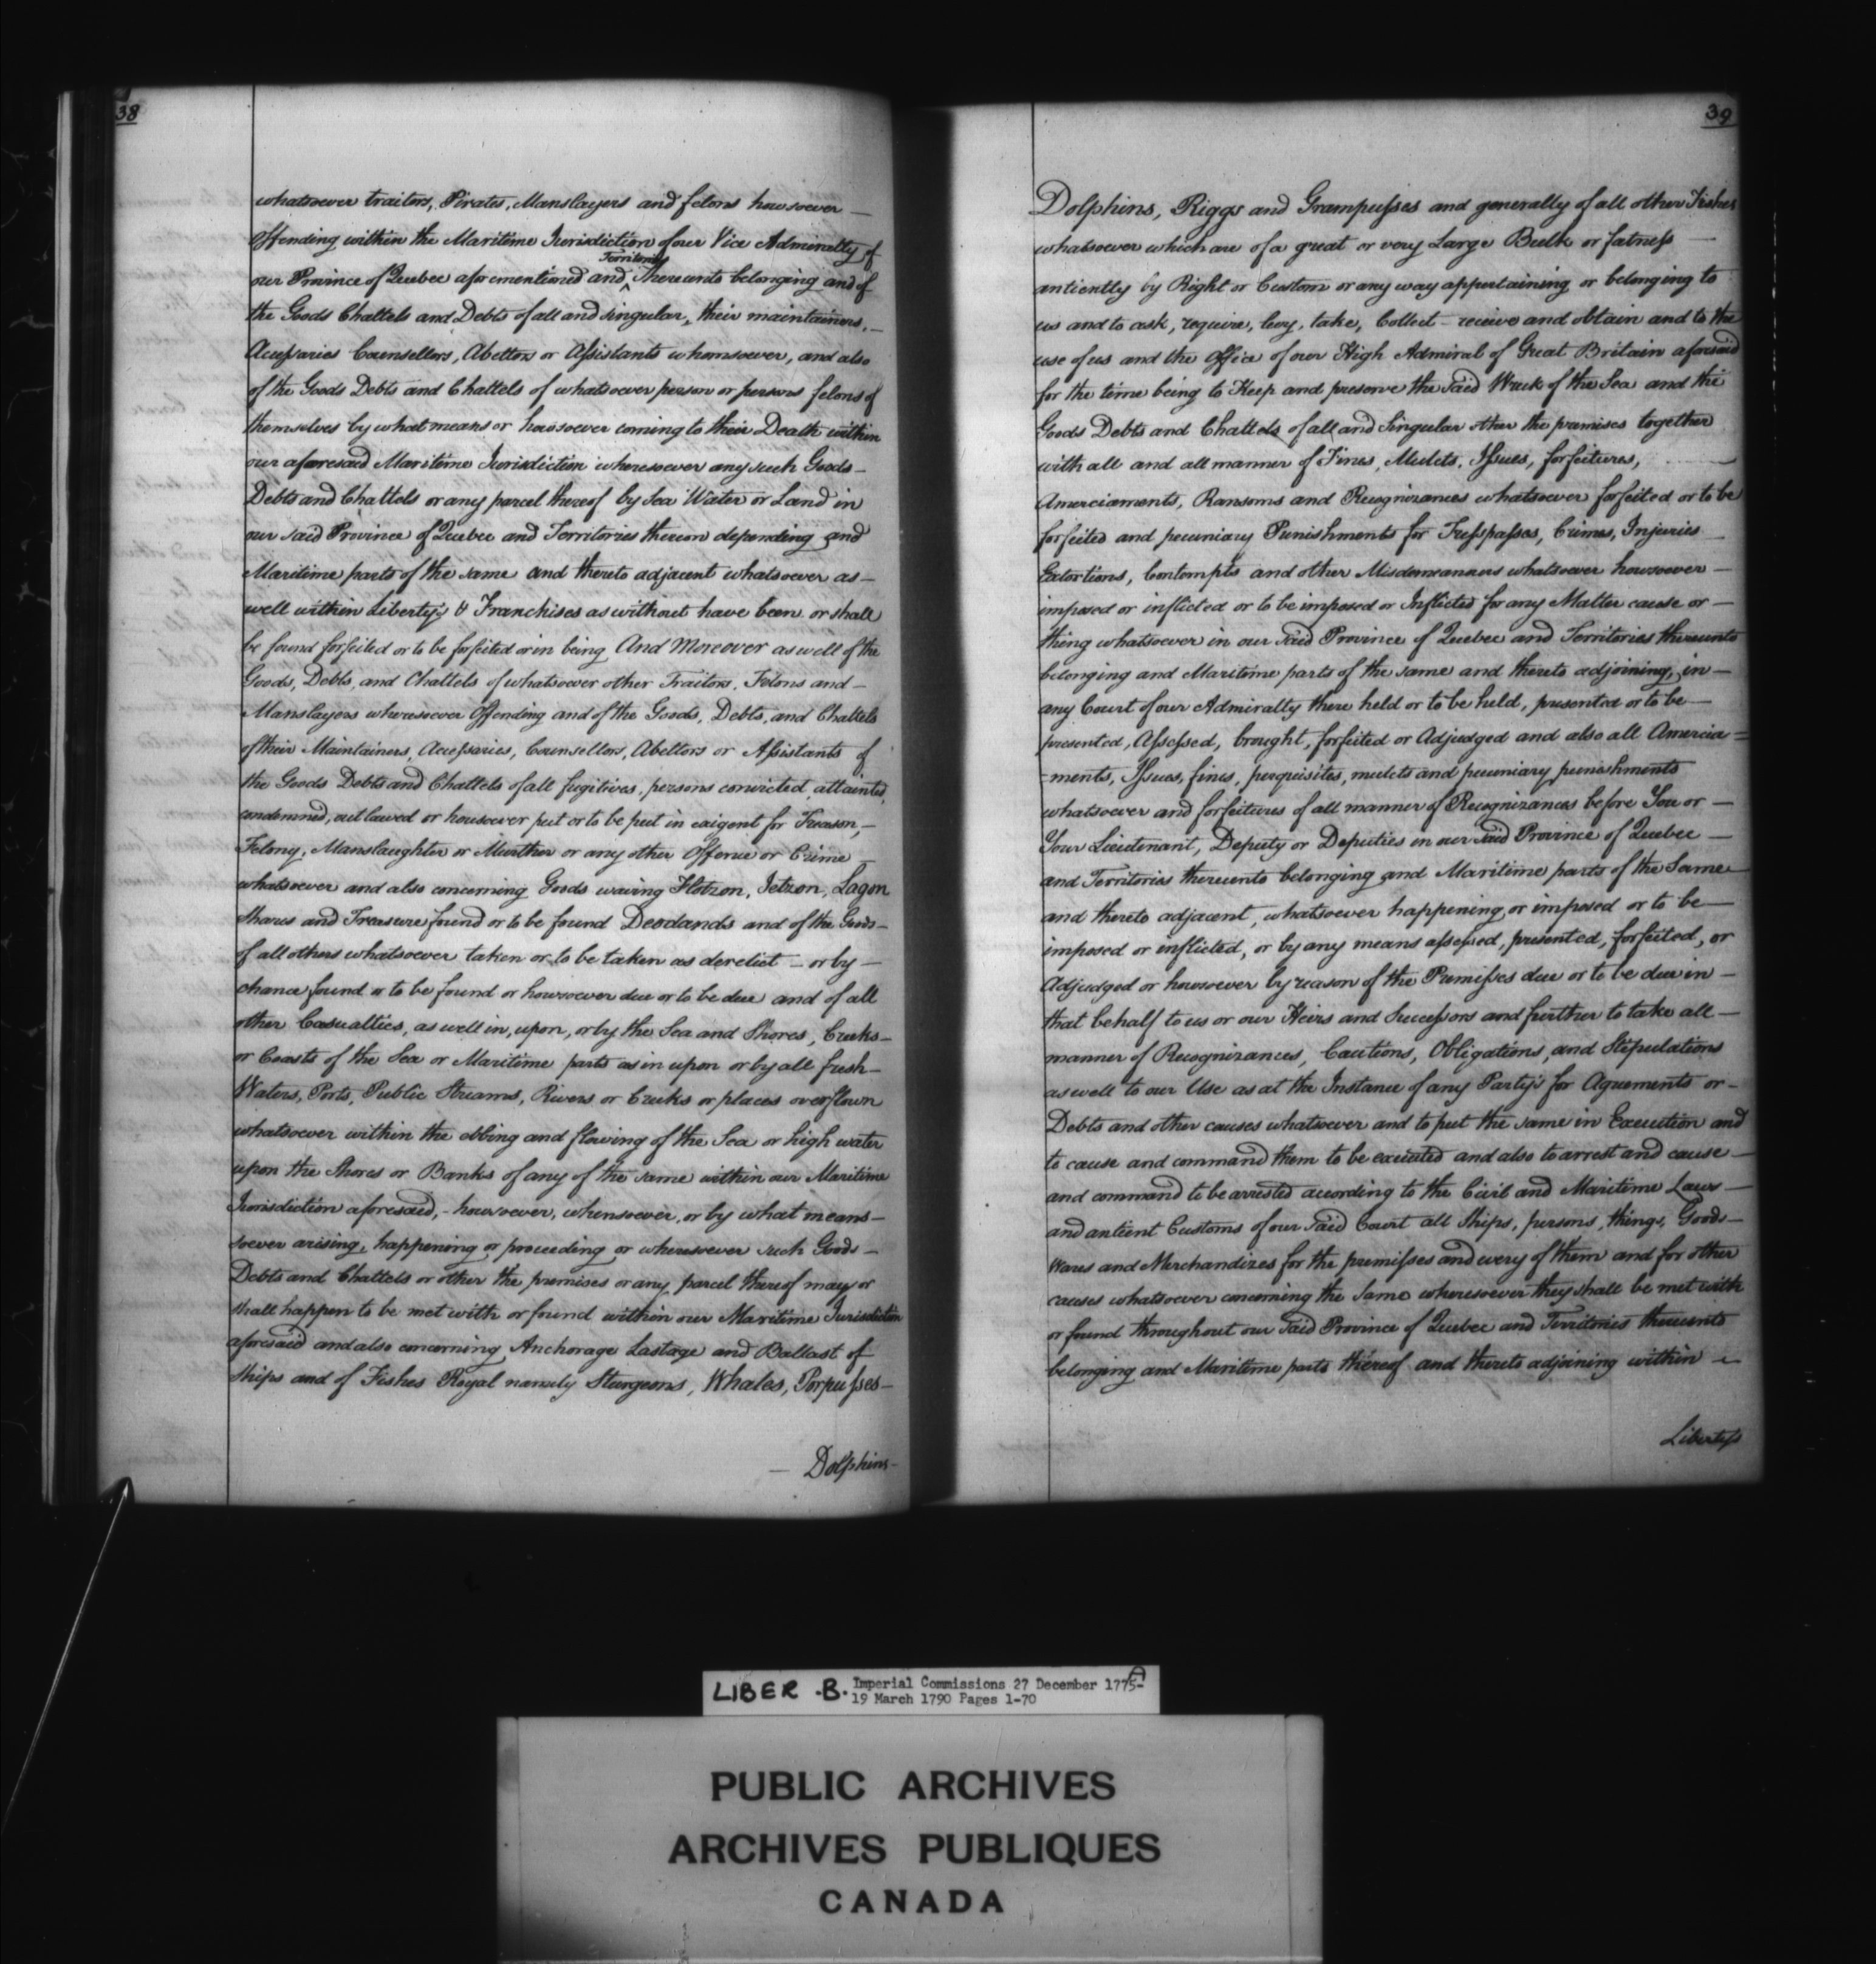 38
whatsoever traitors, Pirates, Manslayers and felons howsoever —
offending within the Maritime Jurisdiction of our Vice Admiralty of
Territories
our Province of Quebec aforementioned and ^ thereunto belonging and of
the Goods Chattels and Debts of all and singular, their maintainers, —
Accessaries Counsellors, Abettors or Assistants whomsoever, and also
of the Goods Debts and Chattels of whatsoever person or persons felons of
themselves by what means or howsoever coming to their Death within
our aforesaid Maritime Jurisdiction wheresoever any such Goods —
Debts and Chattels or any parcel thereof by Sea Water or Land in
our said Province of Quebec and Territories thereon depending and
Maritime parts of the same and thereto adjacent whatsoever as —
well within Liberty's & Franchises as without have been or shall
be found forfeited or to be forfeited or in being And Moreover as well of the
Goods, Debts, and Chattels of whatsoever other Traitors, Felons and —
Manslayers wheresoever Offending and of the Goods, Debts, and Chattels
of their Maintainers, Accessaries, Counsellors, Abettors or Assistants of
the Goods Debts and Chattels of all fugitives, persons convicted, attainted,
condemned, outlawed or howsoever put or to be put in exigent for Treason, —
Felony, Manslaughter or Murther or any other Offence or Crime —
whatsoever and also concerning Goods waving Flotzon, Jetzon, Lagon
Shares and Treasure found or to be found Deodands and of the Goods —
of all others whatsoever taken or to be taken as derelict — or by —
chance found or to be found or howsoever due or to be due and of all
other Casualties, as well in, upon, or by the Sea and Shores, Creeks —
or Coasts of the Sea or Maritime parts as in upon or by all fresh —
Waters, Ports, Public Streams, Rivers or Creeks or places overflown
whatsoever within the ebbing and flowing of the Sea or high water
upon the Shores or Banks of any of the same within our Maritime
Jurisdiction aforesaid, - howsoever, whensoever, or by what means —
soever arising, happening or proceeding or wheresoever such Goods —
Debts and Chattels or other the premises or any parcel thereof may or
shall happen to be met with or found within our Maritime Jurisdiction
aforesaid and also concerning Anchorage Lastage and Ballast of
Ships and of Fishes Royal namely Sturgeons, Whales, Porpusses —
— Dolphins —
39
Dolphins, Riggs and Grampusses and generally of all other Fishes
whatsoever which are of a great or very Large Bulk or fatness —
antiently by Right or Custom or any way appertaining or belonging to
us and to ask, require, levy, take, Collect — receive and obtain and to the
use of us and the Office of our High Admiral of Great Britain aforesaid
for the time being to Keep and preserve the said Wreck of the Sea and the
Goods Debts and Chattels of all and Singular other the premises together
with all and all manner of Fines, Mulcts, Issues, forfeitures, —
Amerciaments, Ransoms and Recognizances whatsoever forfeited or to be
forfeited and pecuniary Punishments for Tresspasses, Crimes, Injuries —
Extortions, Contempts and other Misdemeanners whatsoever howsoever —
imposed or inflicted or to be imposed or Inflicted for any Matter cause or —
thing whatsoever in our said Province of Quebec and Territories thereunto
belonging and Maritime parts of the same and thereto adjoining, in —
any Court of our Admiralty there held or to be held, presented or to be —
presented, Assessed, brought, forfeited or Adjudged and also all Amercia=
=ments, Issues, fines, perquisites, mulcts and pecuniary punishments
whatsoever and forfeitures of all manner of Recognizances before You or —
Your Lieutenant, Deputy or Deputies in our said Province of Quebec —
and Territories thereunto belonging and Maritime parts of the Same
and thereto adjacent, whatsoever happening or imposed or to be —
imposed or inflicted, or by any means assessed, presented, forfeited, or
Adjudged or howsoever by reason of the Premisses due or to be due in —
that behalf to us or our Heirs and Successors and further to take all —
manner of Recognizances, Cautions, Obligations, and Stipulations
as well to our Use as at the Instance of any Party's for Agreements or —
Debts and other causes whatsoever and to put the same in Execution and
to cause and command them to be executed and also to arrest and cause —
and command to be arrested according to the Civil and Maritime Laws —
and antient Customs of our said Court all Ships, persons, things, Goods —
Wares and Merchandizes for the premisses and every of them and for other
causes whatsoever concerning the Same wheresoever they shall be met with
or found throughout our said Province of Quebec and Territories thereunto
belonging and Maritime parts thereof and thereto adjoining within —
Libertys
LIBER .B. Imperial Commissions 27 December 1775-A
19 March 1790 Pages 1-70
PUBLIC ARCHIVES
ARCHIVES PUBLIQUES
CANADA